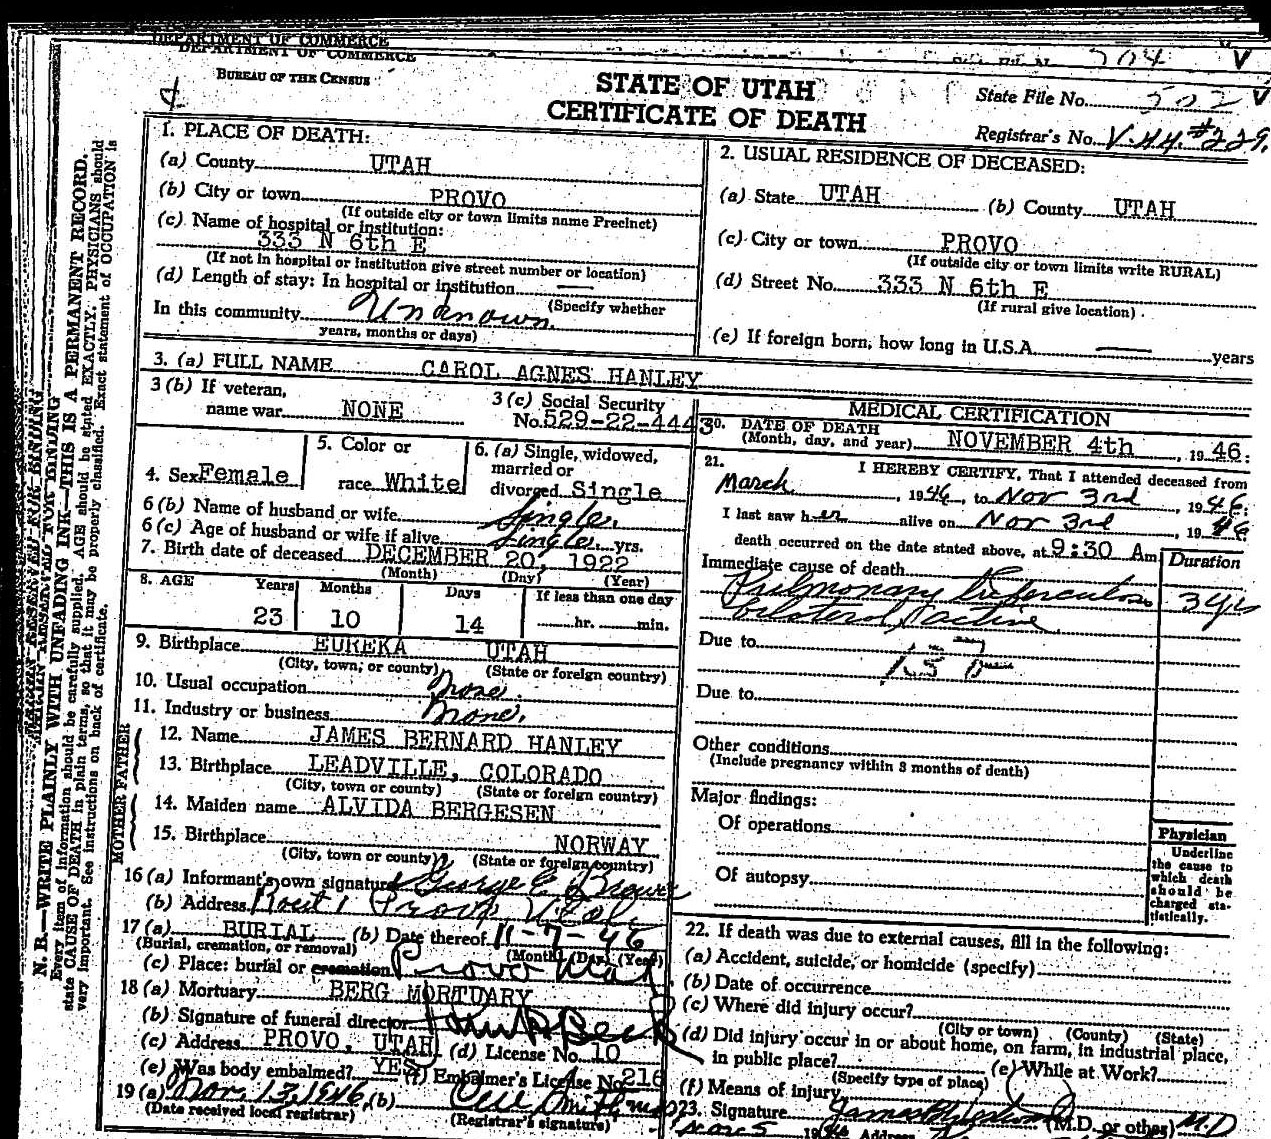 DEPARTMENT OF COMMERCE
DEPARTMENT OF COMMERCE
BUREAU OF THE CENSUS
704 V
STATE OF UTAH
CERTIFICATE OF DEATH
State File No. 502 V
Registrar's No. V.44. #229.
N. B.—WRITE PLAINLY WITH UNFADING INK—THIS IS A PERMANENT RECORD.
Every item of information should be carefully supplied. AGE should be stated EXACTLY. PHYSICIANS should
state CAUSE OF DEATH in plain terms, so that it may be properly classified. Exact statement of OCCUPATION is
very important. See instructions on back of certificate.
1. PLACE OF DEATH:
(a) County UTAH
(b) City or town PROVO
(If outside city or town limits name Precinct)
(c) Name of hospital or institution:
333 N 6th E
(If not in hospital or institution give street number or location)
(d) Length of stay: In hospital or institution —
(Specify whether
In this community Unknown.
years, months or days)
2. USUAL RESIDENCE OF DECEASED:
(a) State UTAH (b) County UTAH
(c) City or town PROVO
(If outside city or town limits write RURAL)
(d) Street No. 333 N 6th E
(If rural give location)
(e) If foreign born, how long in U.S.A. — years
3. (a) FULL NAME CAROL AGNES HANLEY
3 (b) If veteran, name war NONE
3 (c) Social Security No. 529-22-4443
4. Sex Female
5. Color or race White
6. (a) Single, widowed, married or divorced Single
6 (b) Name of husband or wife Single.
6 (c) Age of husband or wife if alive Single yrs.
7. Birth date of deceased DECEMBER 20, 1922
(Month) (Day) (Year)
8. AGE Years Months Days If less than one day
23 10 14 hr. min.
9. Birthplace EUREKA UTAH
(City, town, or county) (State or foreign country)
10. Usual occupation None.
11. Industry or business None.
MOTHER FATHER
12. Name JAMES BERNARD HANLEY
13. Birthplace LEADVILLE, COLORADO
(City, town or county) (State or foreign country)
14. Maiden name ALVIDA BERGESEN
15. Birthplace NORWAY
(City, town or county) (State or foreign country)
16 (a) Informant's own signature George E.
(b) Address Rout 1 Provo, Utah.
17 (a) BURIAL (b) Date thereof 11-7-46
(Burial, cremation, or removal) (Month) (Day) (Year)
(c) Place: burial or cremation Provo Utah
18 (a) Mortuary BERG MORTUARY
(b) Signature of funeral director
(c) Address PROVO, UTAH (d) License No. 10
(e) Was body embalmed? YES (f) Embalmer's License No. 216
19 (a) Nov. 13, 1946, (b)
(Date received local registrar) (Registrar's signature)
MEDICAL CERTIFICATION
20. DATE OF DEATH
(Month, day, and year) NOVEMBER 4th, 1946.
21. I HEREBY CERTIFY, That I attended deceased from
March, 1946, to Nov 3rd, 1946.
I last saw her alive on Nov 3rd, 1946
death occurred on the date stated above, at 9:30 Am
Immediate cause of death Duration
Pulmonary Tuberculosis 3 yrs
bilateral, active
Due to
Due to
Other conditions
(Include pregnancy within 3 months of death)
Major findings:
Of operations
Of autopsy
Physician
Underline
the cause to
which death
should be
charged sta-
tistically.
22. If death was due to external causes, fill in the following:
(a) Accident, suicide, or homicide (specify)
(b) Date of occurrence
(c) Where did injury occur?
(City or town) (County) (State)
(d) Did injury occur in or about home, on farm, in industrial place,
in public place? (e) While at Work?
(Specify type of place)
(f) Means of injury
23. Signature (M.D. or other) M.D
Nov 5 1946 Address